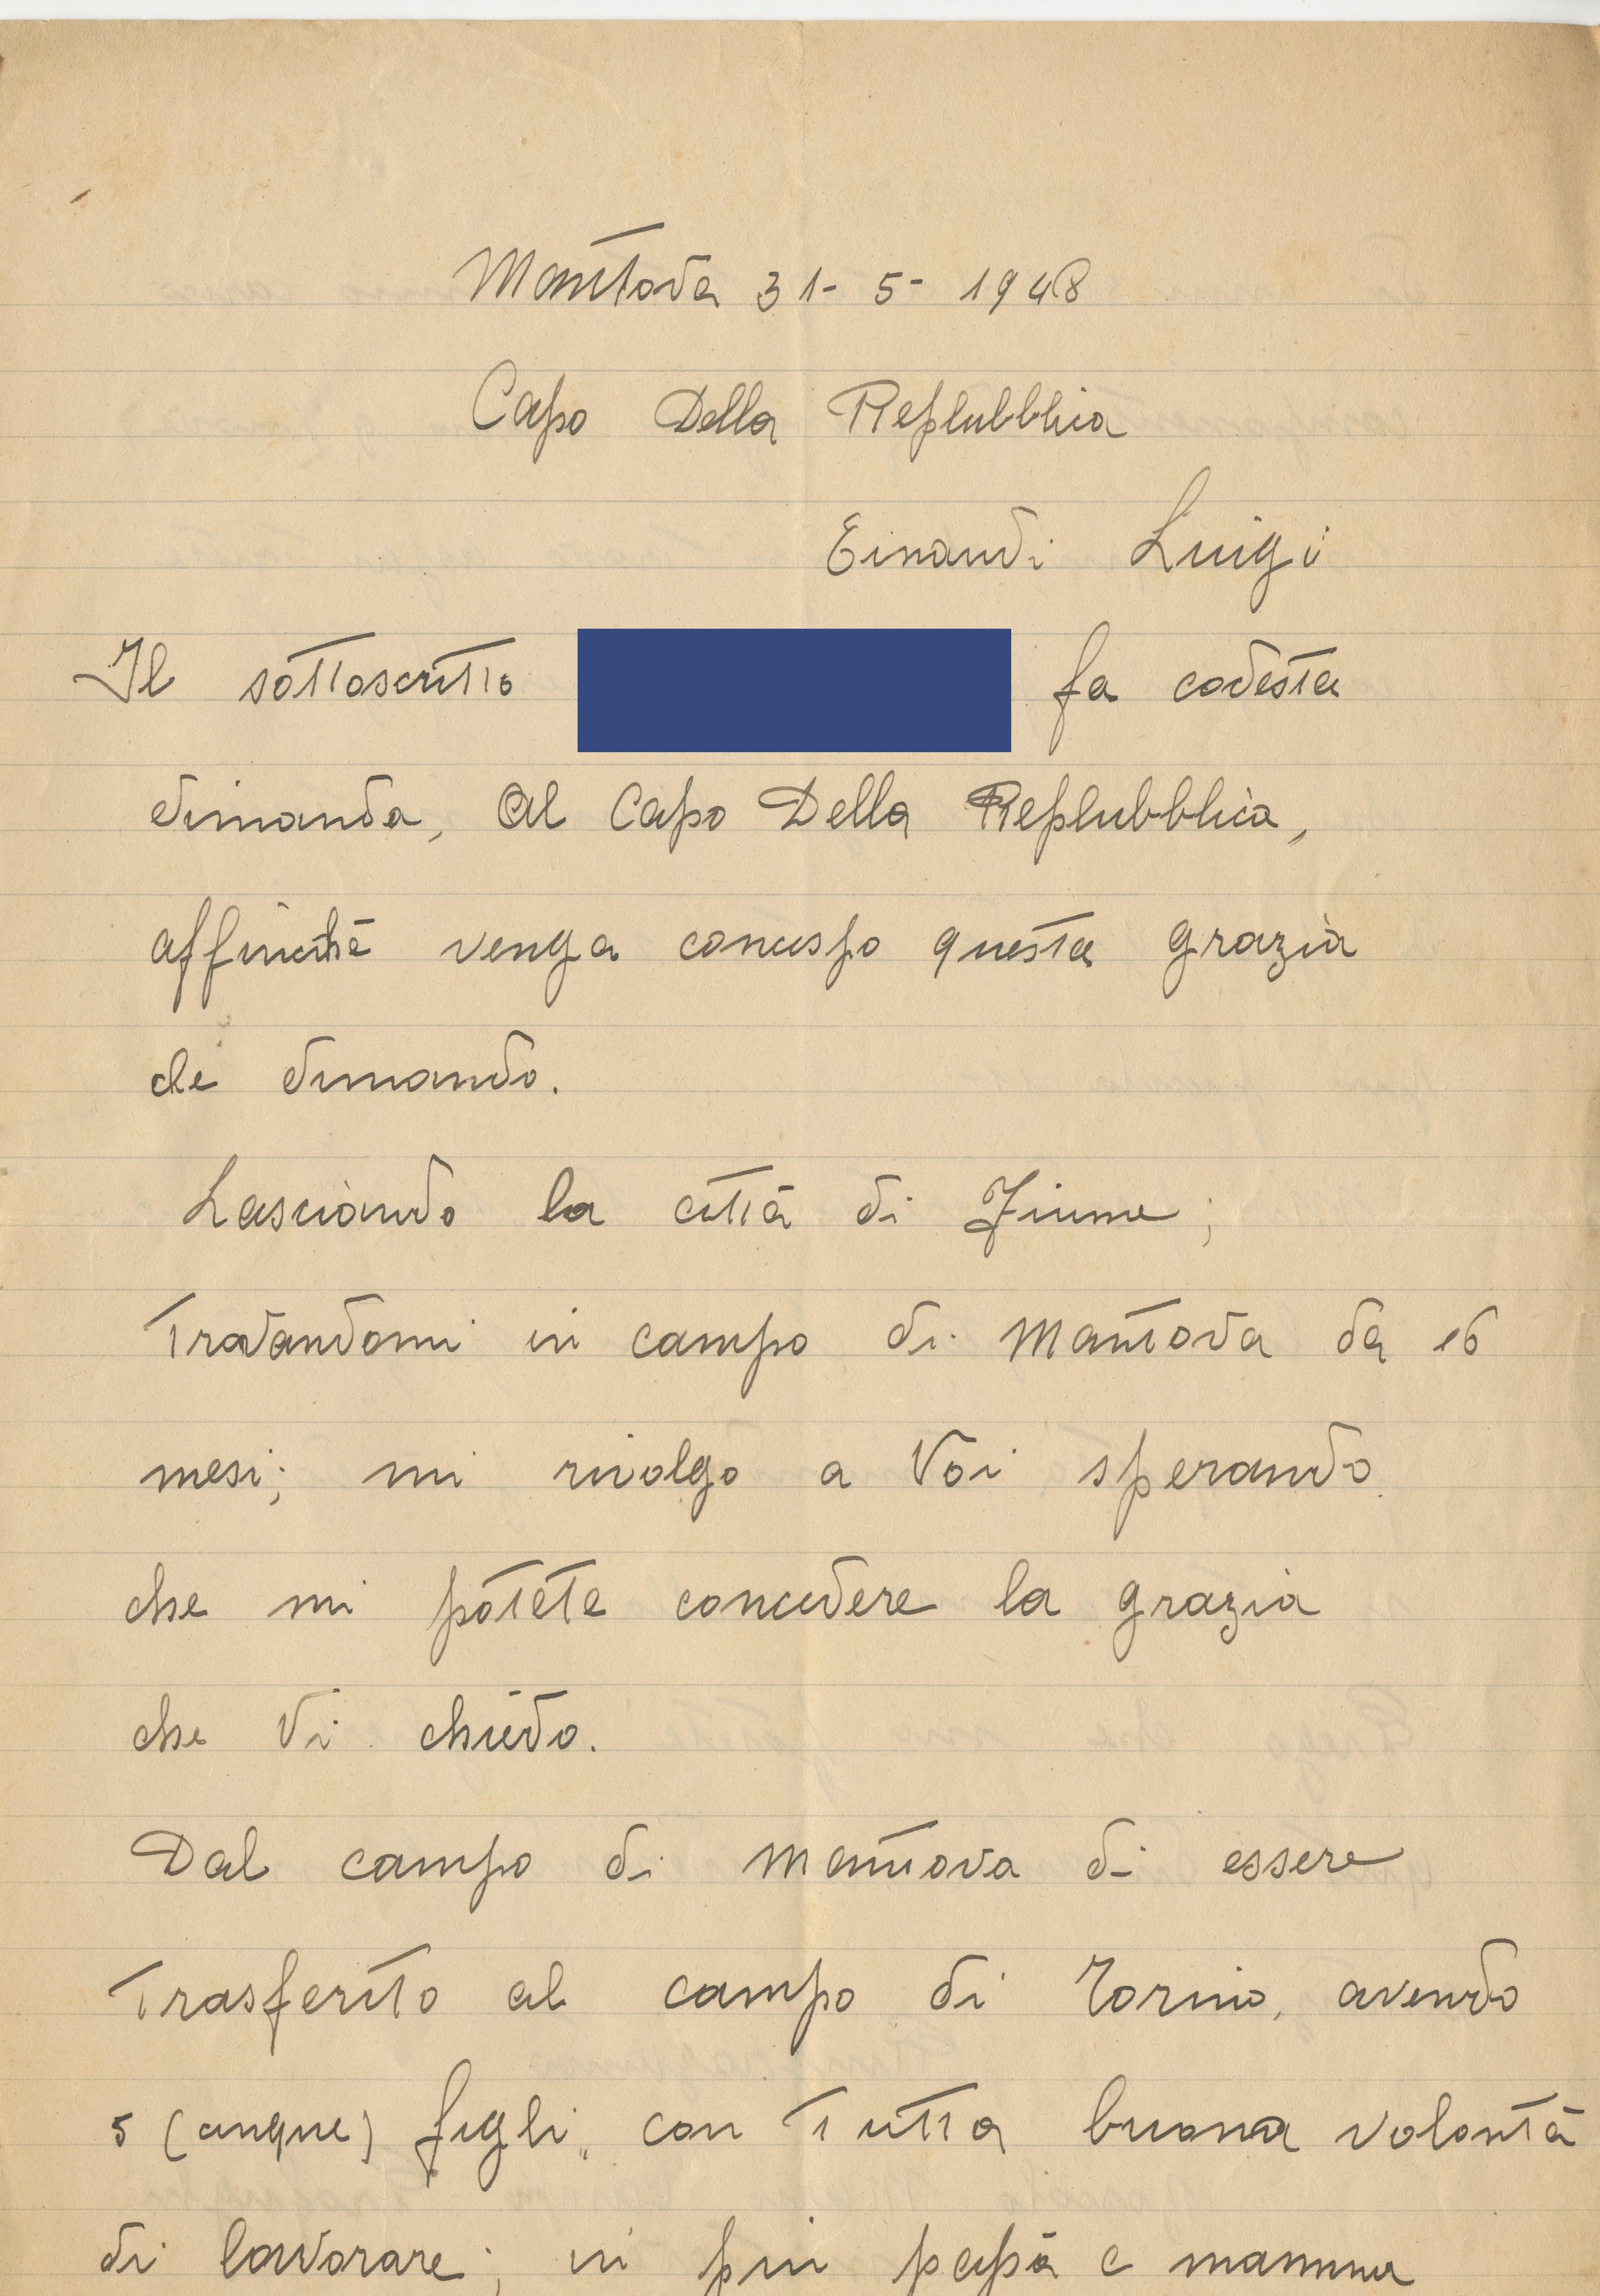 Mantova 31- 5- 1948
Capo Della Replubblica
Einaudi Luigi
Il sottoscritto fa codesta
dimanda, Al Capo Della Replubblica,
affinché venga concesso questa grazia
che dimando.
Lasciando la città di Fiume;
Trovandomi in campo di Mantova da 16
mesi; mi rivolgo a Voi sperando
che mi potete concedere la grazia
che Vi chiedo.
Dal campo di Mantova di essere
Trasferito al campo di Torino, avendo
5 (cinque) figli, con Tutta buona volontà
di lavorare; in più papà e mamma